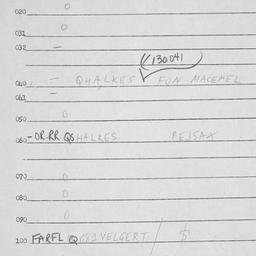 020 0
031 0
032 -
130041
040 - QHALKES FUN MACEMEL
041 -
050 0
060 - OR.RR QSHALKES PEJSAX
070 0
080 0
090 0
100 FARFL Q VELGERT / $